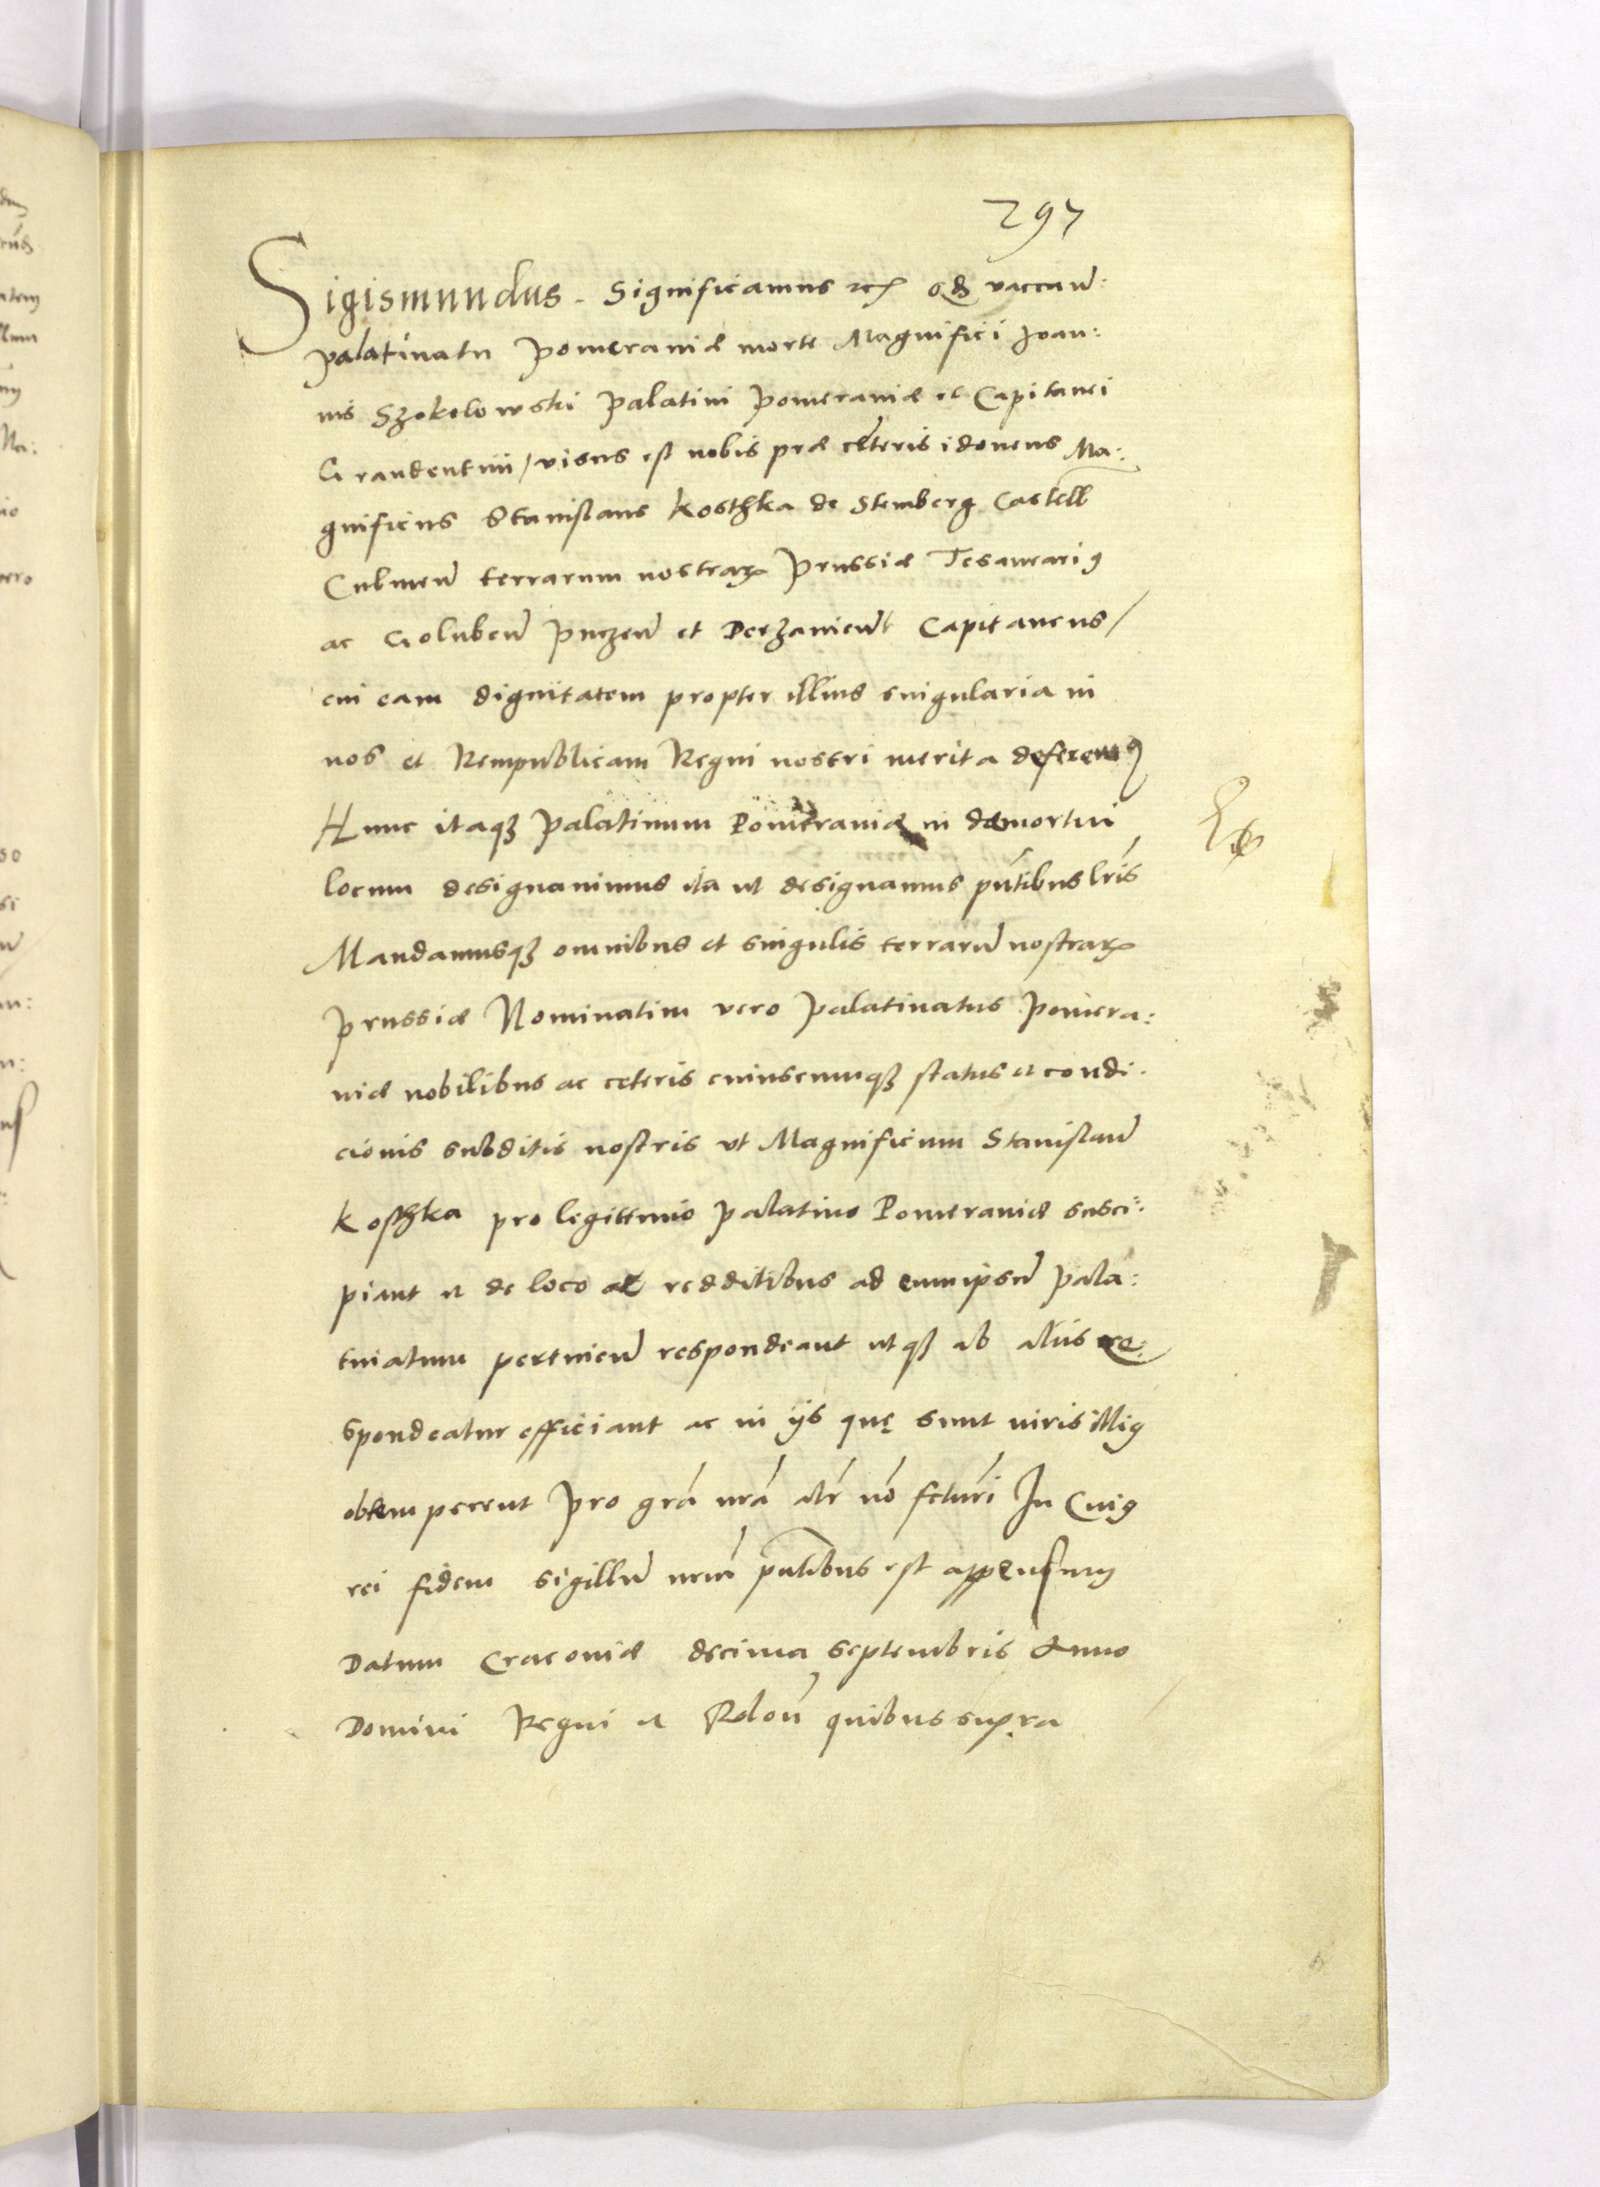 297
Sigismundus. Significamus etc. qd vaccan:
palatinatu Pomeraniæ morte Magnifici Joan:
nis Szokolowski palatini Pomeraniæ et Capitanei
Graudentini / visus est nobis præ cæteris idoneus Ma:
gnificus Stanislaus Kosthka de Stemberg Castell
Culmen terrarum nostrar Prussiæ Tesaurari9
ac Goluben Puczen et Derzanient Capitaneus /
cui eam dignitatem propter illius singularia in
nos et Rempublicam Regni nostri merita deferem9
Hunc itaq3 Palatinum Pomeraniæ in dæmortui
locum designavimus ita ut designamus pntibus lris
Mandamusq3 omnibus et singulis terraru nostrar
Prussiæ Nominatim vero Palatinatus Pomera:
niæ nobilibus ac ceteris cuiuscumq3 status et condi.
cionis subditis nostris ut Magnificum Stanislau
Kosthka pro legittimo palatino Pomeraniæ susci:
piant et de loco ac redditibus ad eum ipsu Pala:
tinatum pertinen respondeant utq3 ab alijs re:
spondeatur efficiant ac in ijs quę sunt iuris illi9
obtemperent Pro gra nra alr no fcturi In Cui9
rei fidem sigillu nrm pntibus est appensum
Datum Cracoviæ decima Septembris Anno
Domini Regni et quibus supra